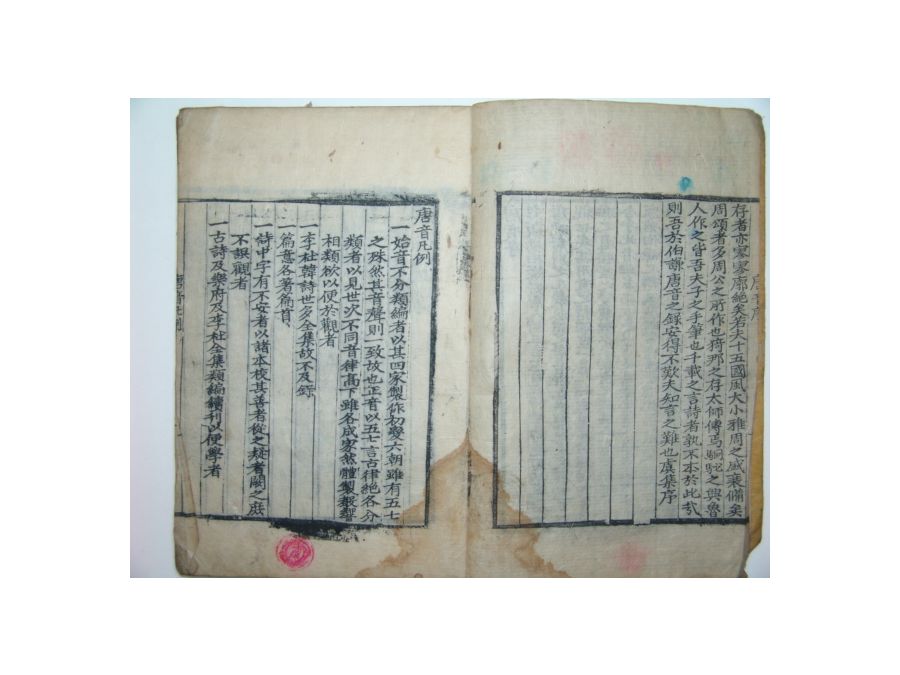 存者亦寥寥廓絕矣若夫十五國風大小雅周之盛衰備矣
周頌者多周公之所作也猗那之存太師傳焉駉駜之興魯
人作之皆吾夫子之手筆也千載之言詩者孰不本於此哉
則吾於伯謙唐音之錄安得不歎夫知言之難也虞集序
唐音序
唐音凡例
一始音不分類編者以其四家製作初變六朝雖有五七
之殊然其音聲則一致故也正音以五七言古律絕各分
類者以見世次不同音律高下雖各成家然體製聲響
相類欲以便於觀者
一李杜韓詩世多全集故不及錄
篇意各著篇首
一詩中字有不安者以諸本校其善者從之疑者闕之庶
不誤觀者
一古詩及樂府及李杜全集類編續刊以便學者
唐音凡例